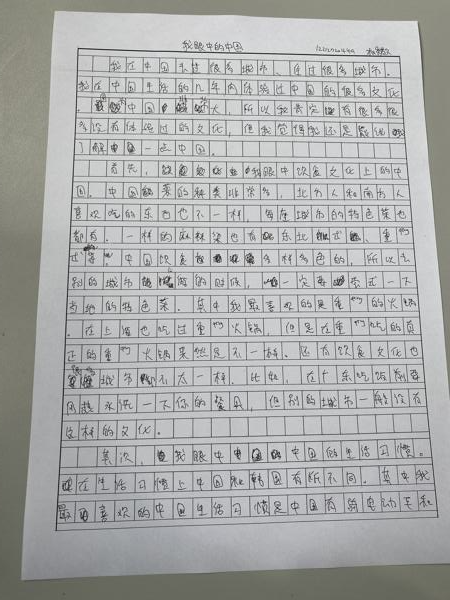 我眼中的中国
我在中国去过很多城市、住过很多城市。
我在中国生活的几年内体验过中国的很多文化
中国大,所以我肯定有很多很
多没有体验过的文化,但我觉得我还是能
了解中国一些中国。
首先,我眼中饮食文化上的中
国。中国菜的种类非常多,北方人和南方人
喜欢吃的东西也不一样,每座城市的特色菜也
都有。一样的麻辣烫也有东北式、重庆
式等。中国饮食多种多色的,所以去
别的城市的时候,一定要尝试一下
当地的特色菜。其中我最喜欢的是重庆的火锅
。在上海也吃过重庆火锅,但是在重庆吃的真
正的重庆火锅果然是不一样。还有饮食文化也
城市都不太一样。比如,在广东吃饭前要
用热水洗一下你的餐具,但别的城市一般没有
这样的文化。
其次,我眼中中国的生活习惯。
在生活习惯上中国和韩国有所不同。其中我
最喜欢的中国生活习惯是中国有骑电动车和